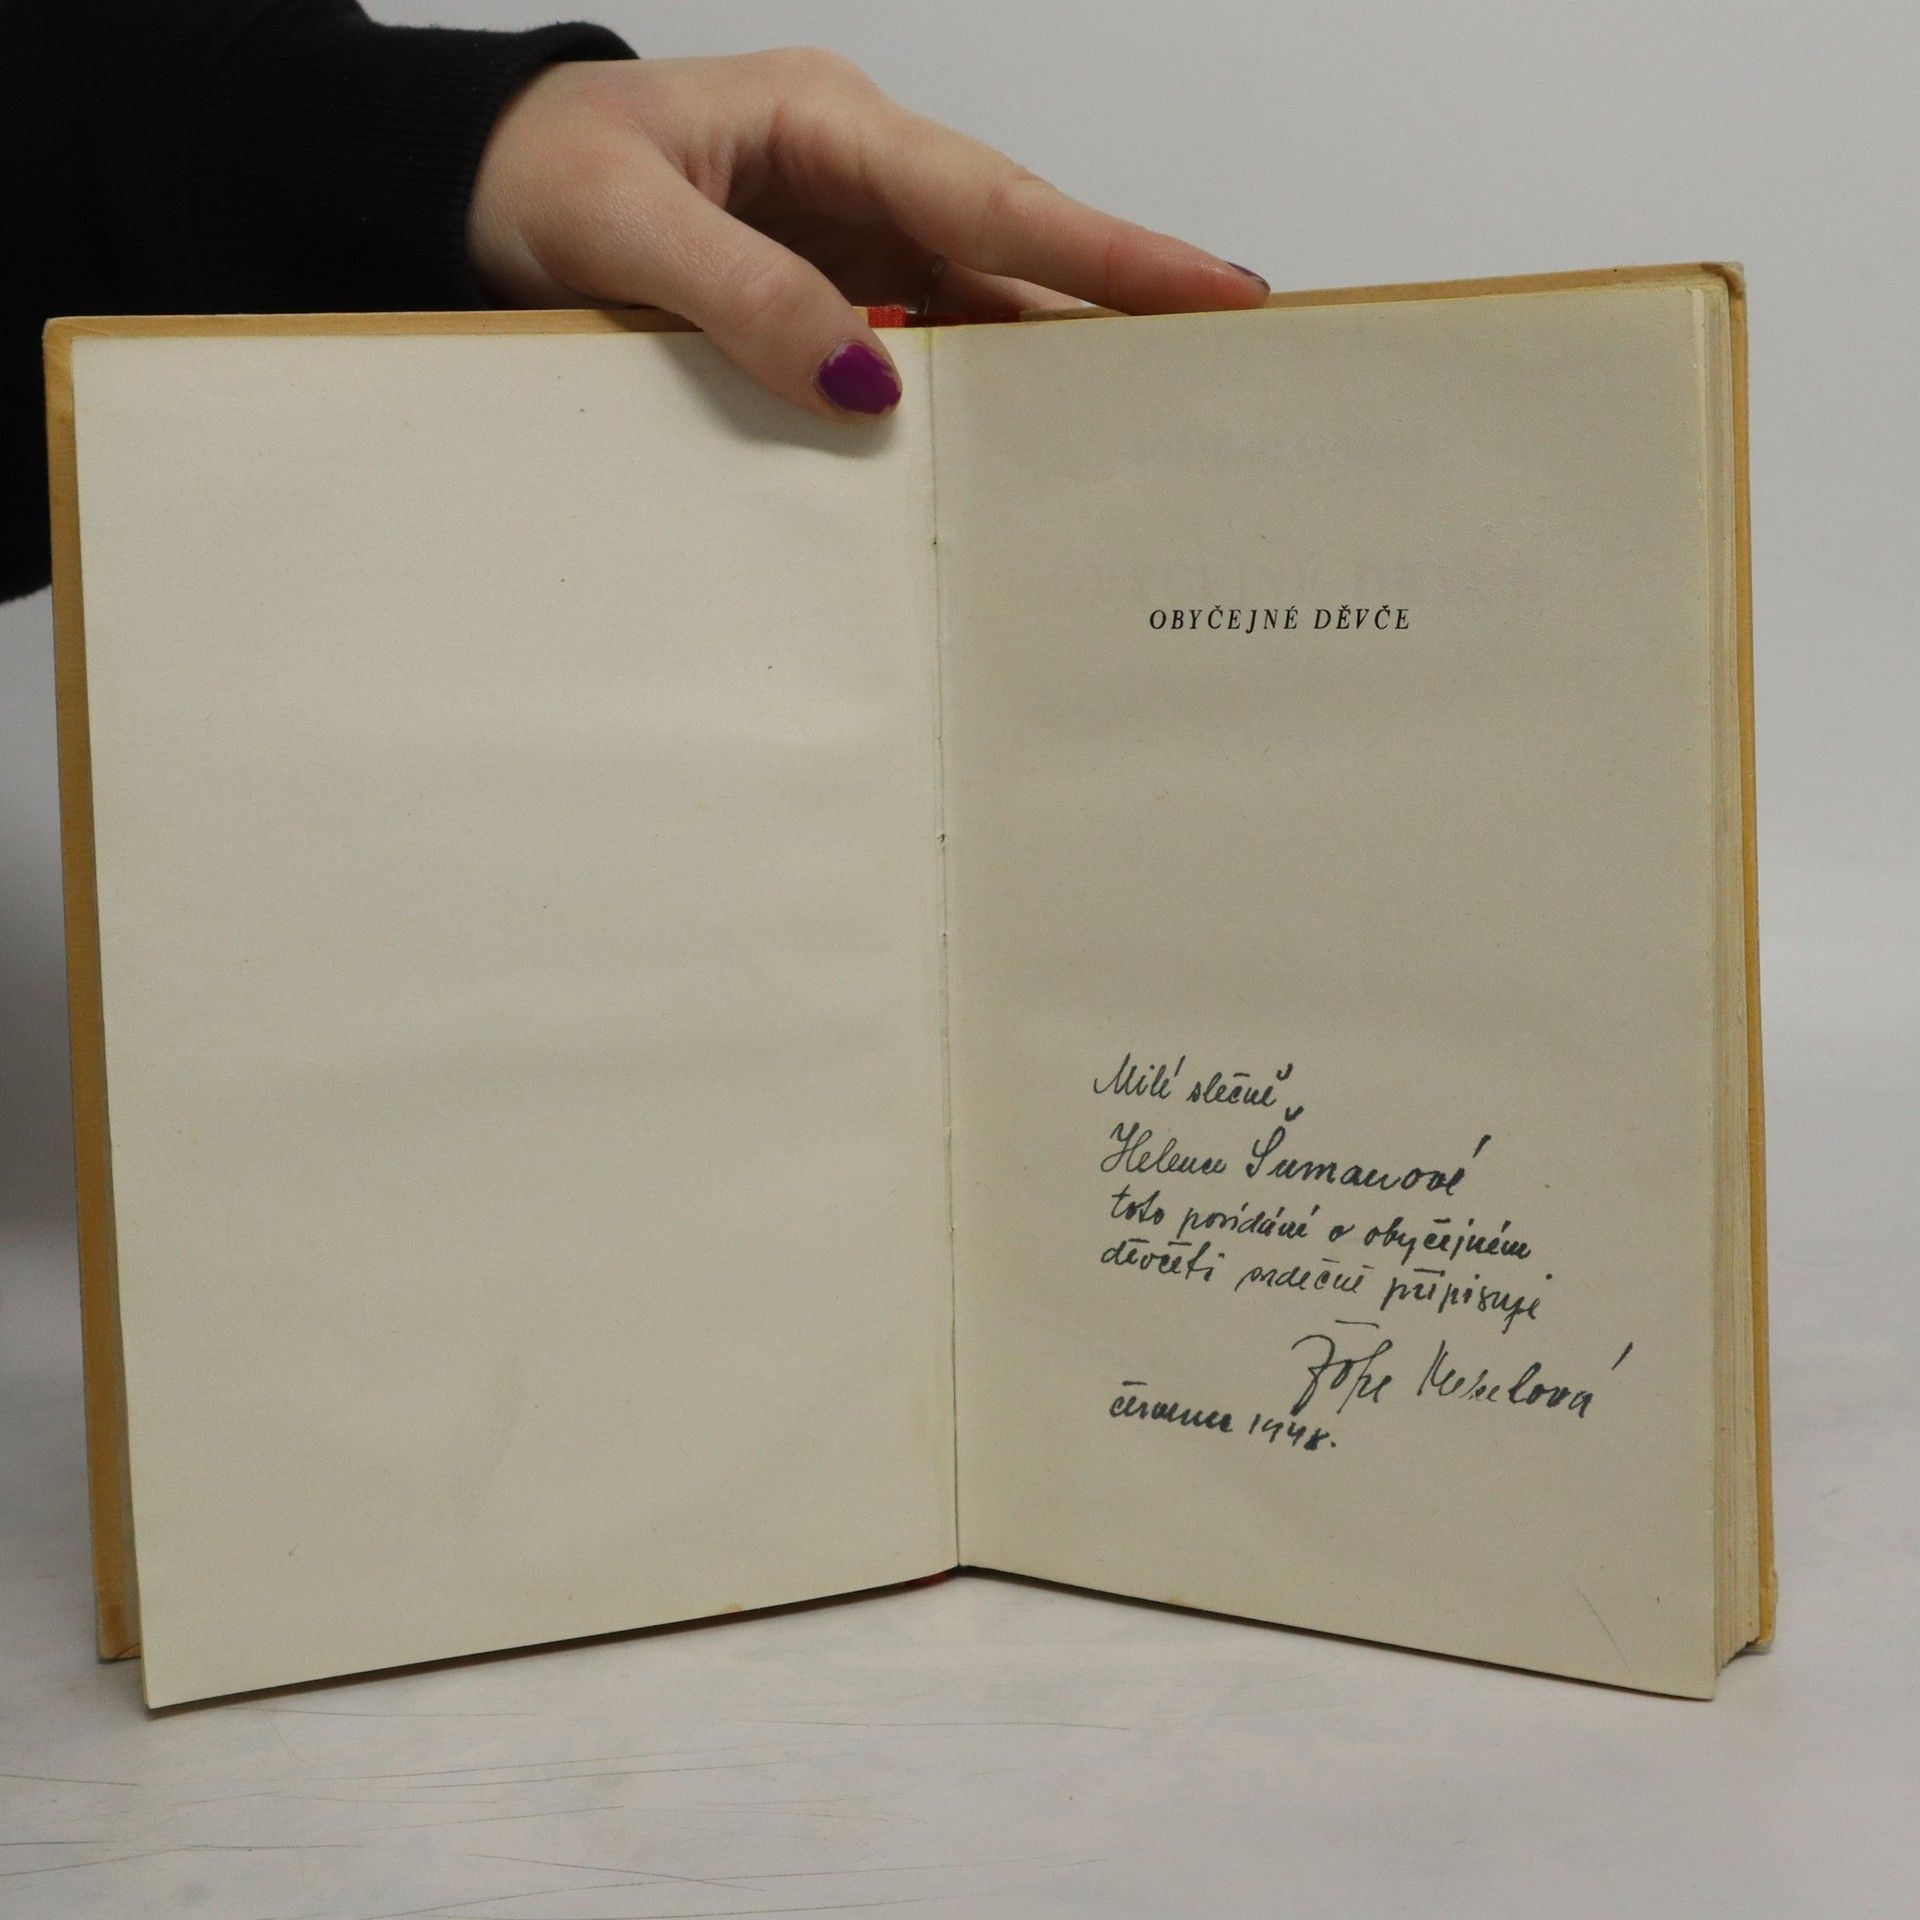 OBYČEJNÉ DĚVČE
Milé slečně
Heleně Šumanové
toto povídání o obyčejném
děvčeti srdečně připisuje
červenec 1948.